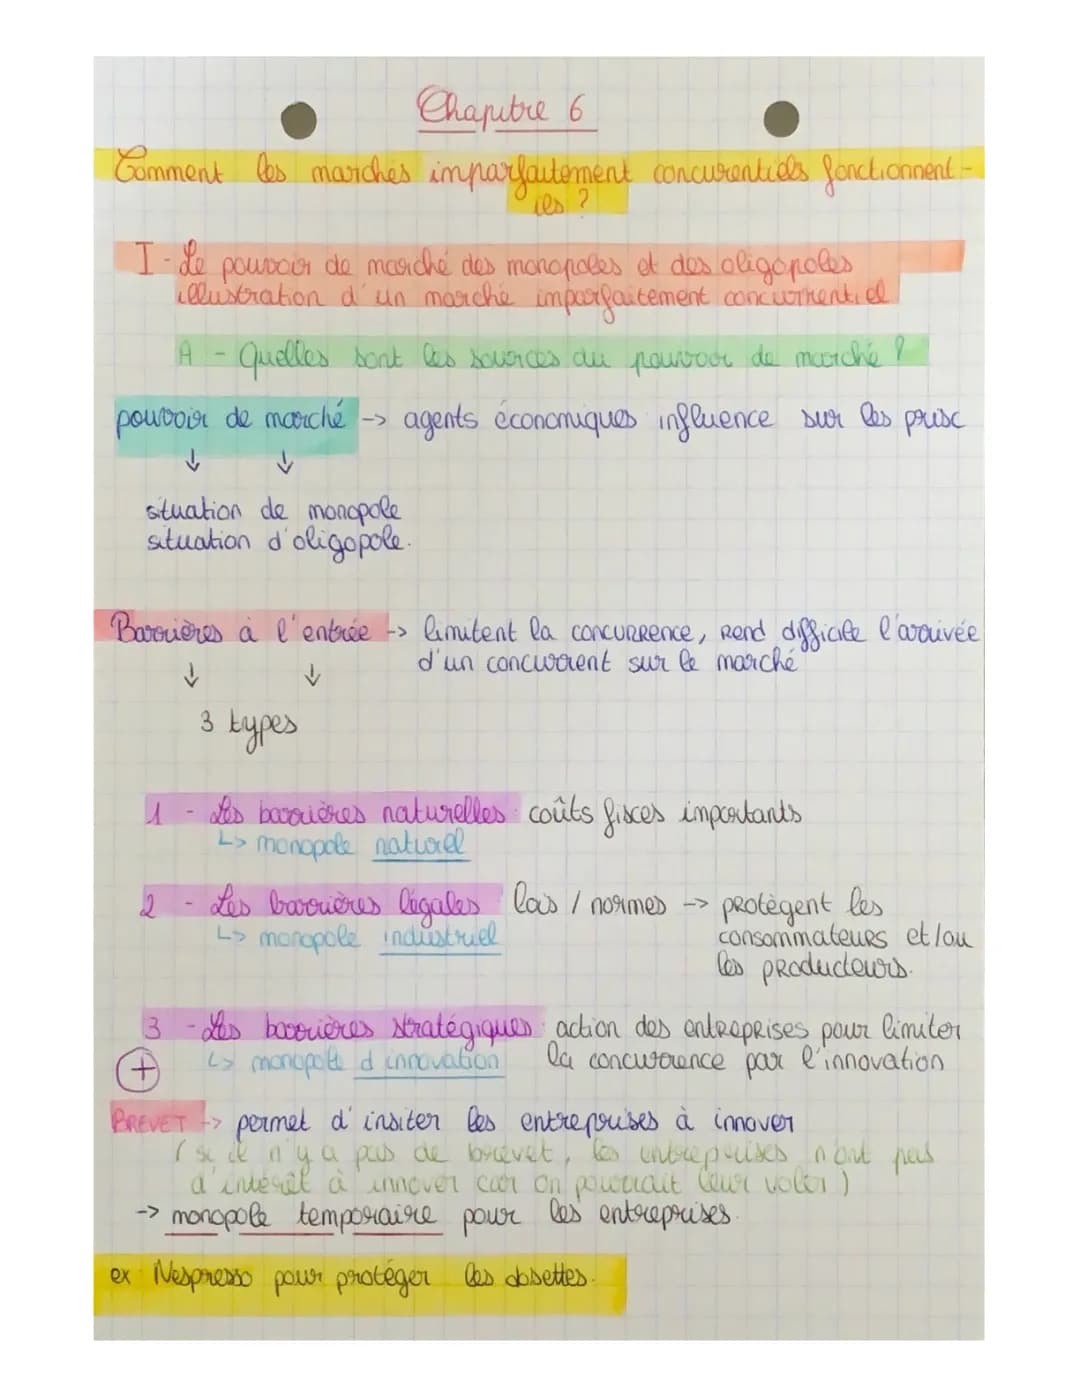 Chapitre 6
Comment les marchés imparfaitement concurentiels fonctionnent-
ils ?
I - Le pouvoir de marché des monopoles et des oligopoles
illustration d'un marché imparfaitement concurrentiel
A - Quelles sont les sources du pouvoir de marché ?
pouvoir de marché -> agents économiques influence sur les prisc
↓ ↓
situation de monopole
situation d'oligopole.
Barrières à l'entrée -> limitent la concurrence, Rend difficile l'arrivée
d'un concurrent sur le marché
↓ ↓
3 types
1 - Les barrières naturelles : coûts fisces importants
↳ monopole naturel
2 - Les barrières légales lois / normes -> protègent les
↳ monopole industriel consommateurs et/ou
les producteurs.
3 - Les barrières stratégiques : action des entreprises pour limiter
+ ↳ monopole d'innovation la concurrence par l'innovation
BREVET -> permet d'insiter les entreprises à innover
( si il n'y a pas de brevet, les entreprises n'ont pas
d'intérêt à innover car on pourrait leur voler )
-> monopole temporaire pour les entreprises.
ex : Nespresso pour protéger les dosettes.